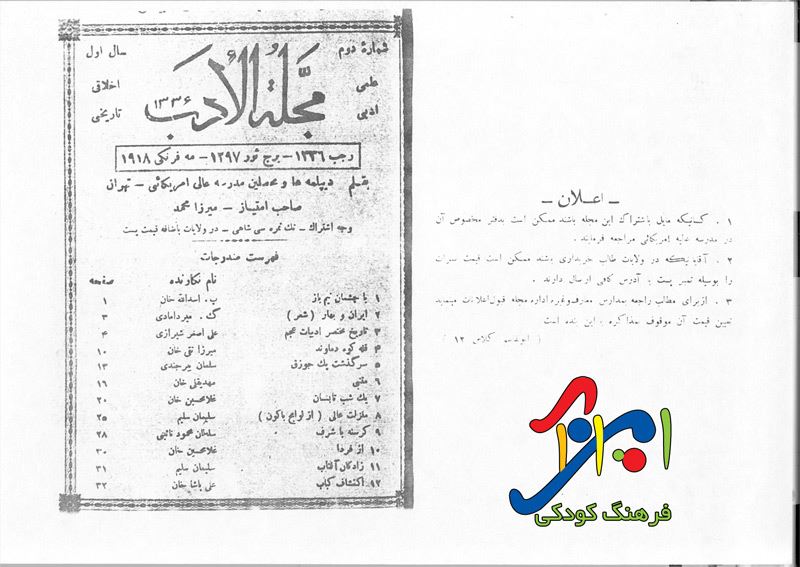 شمارهٔ دوم
سال اول
علمی
اخلاقی
ادبی
تاریخی
مجلة الأدب
۱۳۳۶
رجب ۱۳۳۶ – برج ثور ۱۲۹۷ – مه فرنگی ۱۹۱۸
بقلم دیپلمه ها و محصلین مدرسه عالی امریکائی – تهران
صاحب امتیاز – میرزا محمد
وجه اشتراك – تك نمره سی شاهی – در ولایات باضافه قیمت پست
فهرست مندرجات
نام نگارنده صفحه
۱ با چشمان نیم باز ب. اسدالله خان ۱
۲ ایران و بهار ( شعر ) ك . میردامادی ۳
۳ تاریخ مختصر ادبیات عجم علی اصغر شیرازی ۴
۴ قله کوه دماوند میرزا تقی خان ۱۰
۵ سرگذشت یك جوزق سلمان بیرجندی ۱۳
۶ مهدیقلی خان ۱۶
۷ یك شب تابستان غلامحسین خان ۲۰
۸ منزلت عالی ( از لوایح باکون ) سلیمان سلیم ۲۵
۹ گرسنه با شرف سلطان محمود نائینی ۲۸
۱۰ از فردا غلامحسین خان ۳۰
۱۱ زادگان آفتاب سلیمان سلیم ۳۱
۱۲ اکتشاف کباب علی پاشا خان ۳۲
– اعلان –
۱ . کسانیکه مایل باشتراك این مجله باشند ممکن است بدفتر مخصوص آن
در مدرسه عالیه امریکائی مراجعه فرمایند .
۲ . آقایانیکه در ولایات طالب خریداری باشند ممکن است قیمت نمرات
را بوسیله تمبر پست با آدرس کافی ارسال دارند .
۳ . از برای مطالب راجعه بمدارس معارف وغیره اداره مجله قبول اعلانات مینماید
تعیین قیمت آن موقوف بمذاکره با این بنده است
کلاس ۱۲ )
ایرانک
فرهنگ کودکی